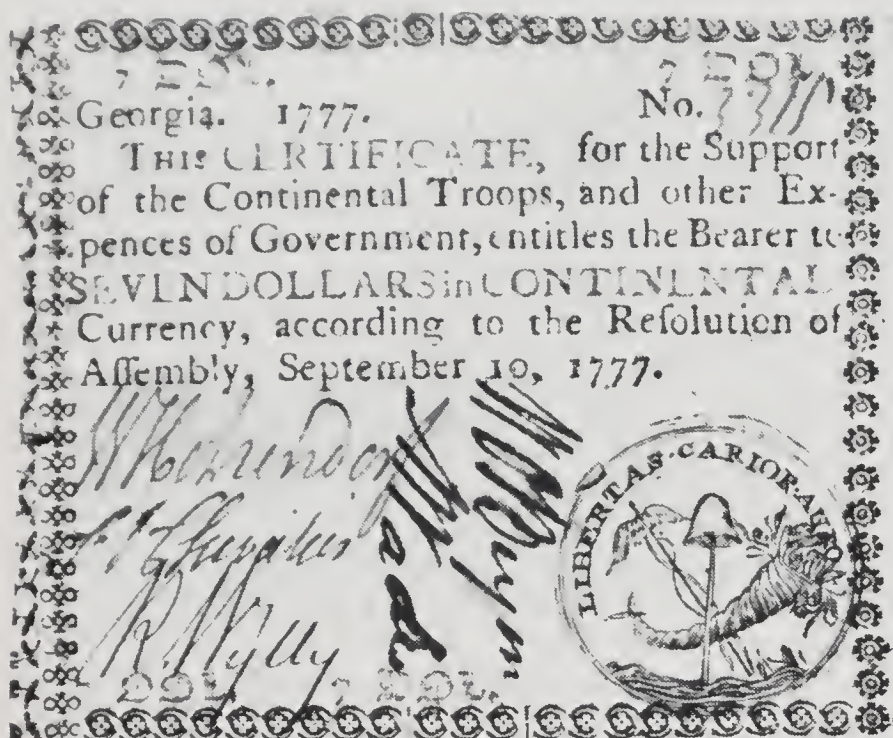 7 DOL. 7 DOL.
Georgia. 1777. No.
THIS CERTIFICATE, for the Support
of the Continental Troops, and other Ex-
pences of Government, entitles the Bearer to
SEVEN DOLLARS in CONTINENTAL
Currency, according to the Reſolution of
Aſſembly, September 10, 1777.
LIBERTAS·CARIOR·AURO
Wylly
DOL. 7 DOL.